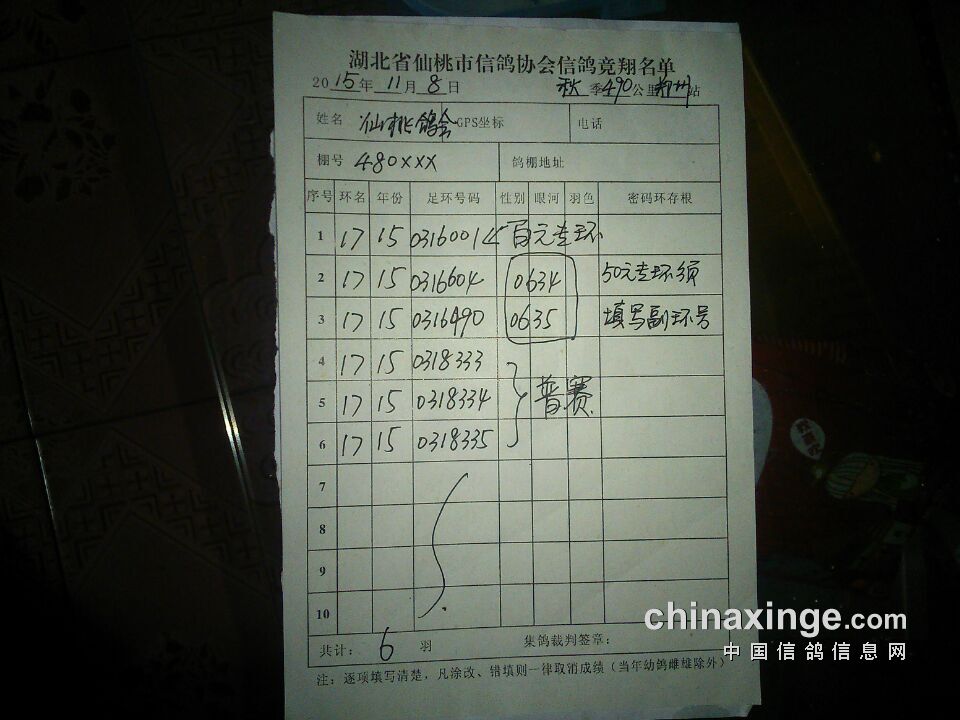 湖北省仙桃市信鸽协会信鸽竞翔名单
2015年11月8日 秋季490公里 站
姓名 仙桃鸽会 GPS坐标 电话
棚号 480XXX 鸽棚地址
序号 环名 年份 足环号码 性别 眼河 羽色 密码环存根
1 17 15 0316001 ← 百元专环
2 17 15 0316604 0634 50元专环须
3 17 15 0316490 0635 填写副环号
4 17 15 0318333
5 17 15 0318334 普赛
6 17 15 0318335
7
8
9
10
共计: 6 羽 集鸽裁判签章:
注: 逐项填写清楚, 凡涂改、错填则一律取消成绩(当年幼鸽雌雄除外)
chinaxinge.com
中国信鸽信息网